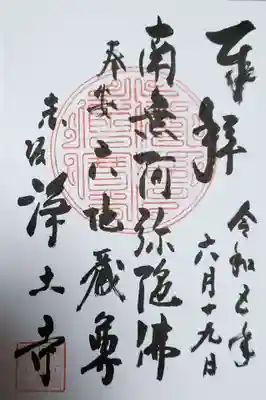 奉拝
令和五年
六月十九日
南無阿弥陀佛
奉安 六地蔵尊
赤坂 浄土寺